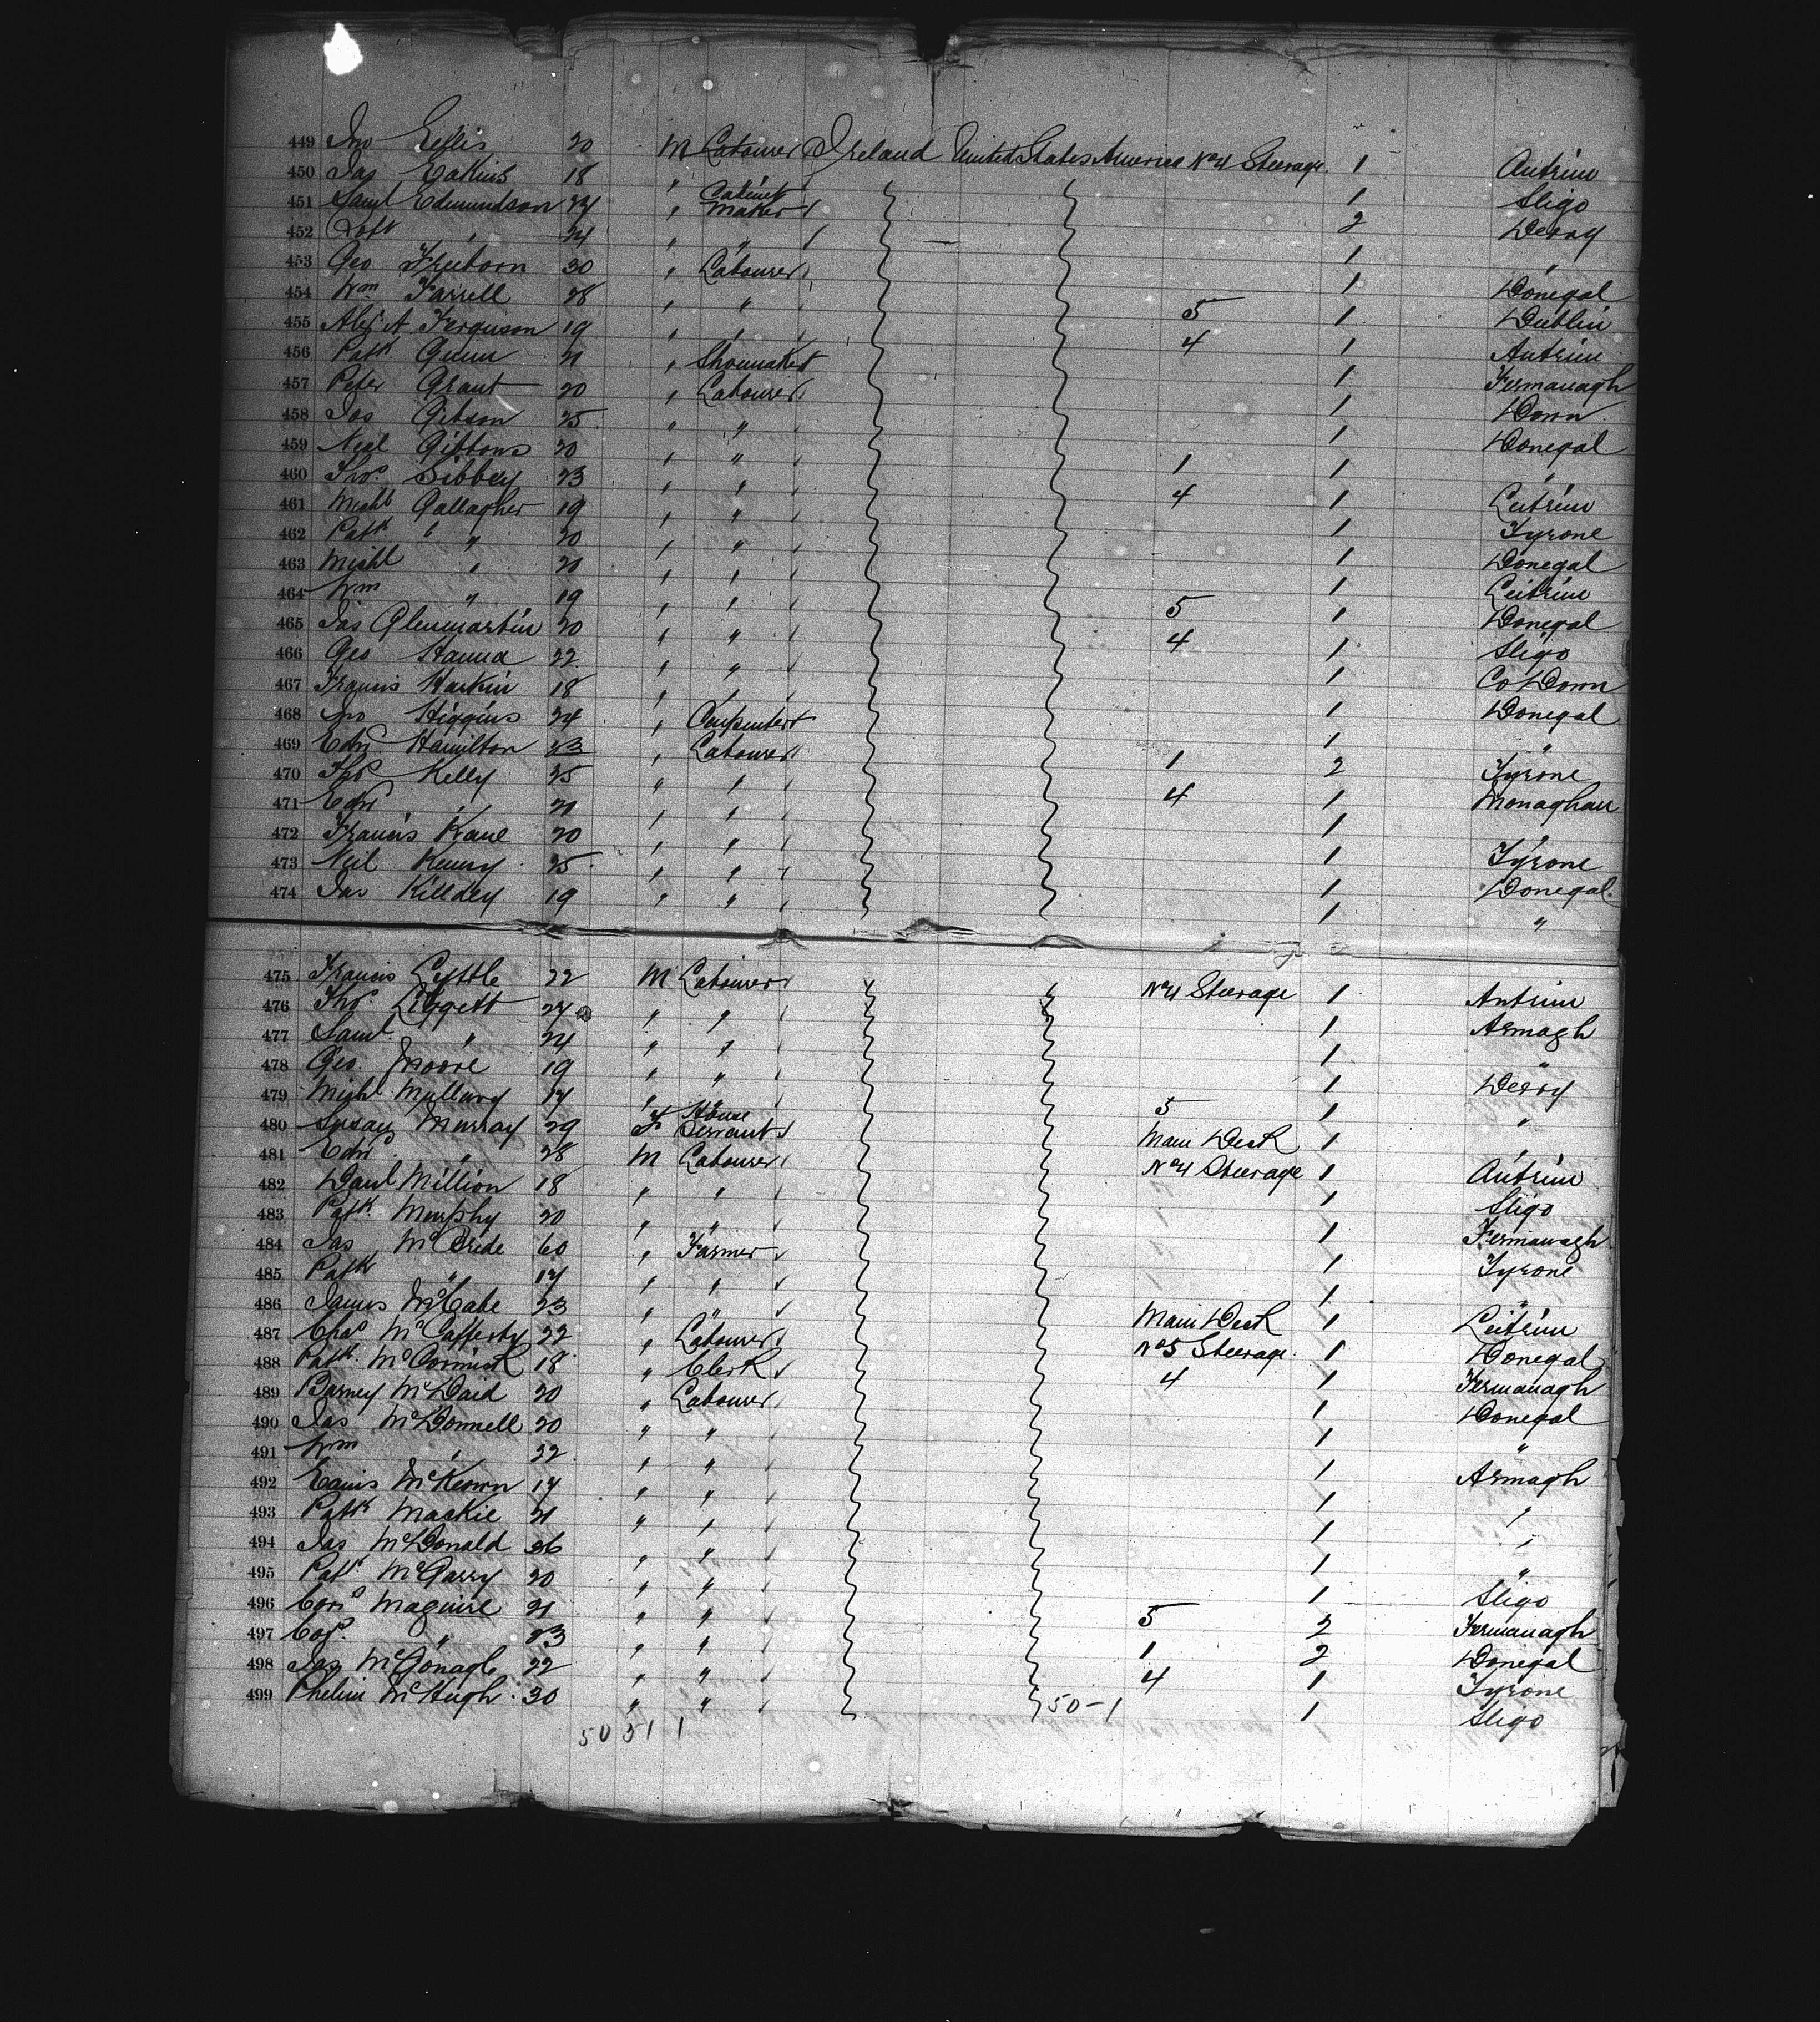 449 Jno Ellis 20 M Labourer Ireland United States America No 4 Steerage 1 Antrim
450 Jas Eakins 18 " " 1 Sligo
451 Saml Edmundson 24 " Cabinet Maker 2 Derry
452 Robt " 24 " " 1 "
453 Geo Freeborn 30 " Labourer 1 Donegal
454 Wm Farrell 28 " " 5 1 Dublin
455 Alex A. Ferguson 19 " " 4 1 Antrim
456 Patk Gunn 21 " Shoemaker 1 Fermanagh
457 Peter Grant 20 " Labourer 1 Down
458 Jas Gibson 25 " " 1 Donegal
459 Neil Gibbons 20 " " 1 1 "
460 Thos. Sibbey 23 " " 4 1 Leitrim
461 Michl Gallagher 19 " " 1 Tyrone
462 Patk " 20 " " 1 Donegal
463 Michl " 20 " " 1 Leitrim
464 Wm " 19 " " 5 1 Donegal
465 Jas Glenmartin 20 " " 4 1 Sligo
466 Geo Hanna 22 " " 1 Co Down
467 Francis Harkin 18 " " 1 Donegal
468 Jno Higgins 24 " Carpenter 1 "
469 Edwd Hamilton 23 " Labourer 1 2 Tyrone
470 Thos Kelly 25 " " 4 1 Monaghan
471 Edwd " 21 " " 1 "
472 Francis Kane 20 " " 1 Tyrone
473 Neil Kenny 25 " " 1 Donegal
474 Jas Killdey 19 " " 1 "
475 Francis Lyttle 22 M Labourer No 4 Steerage 1 Antrim
476 Thos. Liggett 27 " " 1 Armagh
477 Saml. " 24 " " 1 "
478 Geo. Moore 19 " " 1 Derry
479 Michl 17 " " 5 1 "
480 Susan Murray 29 F House Servant Main Deck 1
481 Edwd. " 28 M Labourer No 4 Steerage 1 Antrim
482 Danl Million 18 " " 1 Sligo
483 Patk. Murphy 20 " " 1 Fermanagh
484 Jas McBride 60 " Farmer 1 Tyrone
485 Patk " 17 " " 1 "
486 James McCabe 23 " " Main Deck 1 Leitrim
487 Chas McCafferty 22 " Labourer No 5 Steerage 1 Donegal
488 Patk. McCormick 18 " Clerk 4 1 Fermanagh
489 Barney McDaid 20 " Labourer 1 Donegal
490 Jas McDonnell 20 " " 1 "
491 Wm " 22 " " 1 Armagh
492 McKeown 17 " " 1 "
493 Patk Mackie 21 " " 1 "
494 Jas McDonald 26 " " 1 "
495 Patk McGarry 20 " " 1 Sligo
496 Maguire 21 " " 5 2 Fermanagh
497 " 23 " " 1 2 Donegal
498 Jas McGonagle 22 " " 4 1 Tyrone
499 Phelim McHugh 30 " " 50-1 1 Sligo
50 51 1